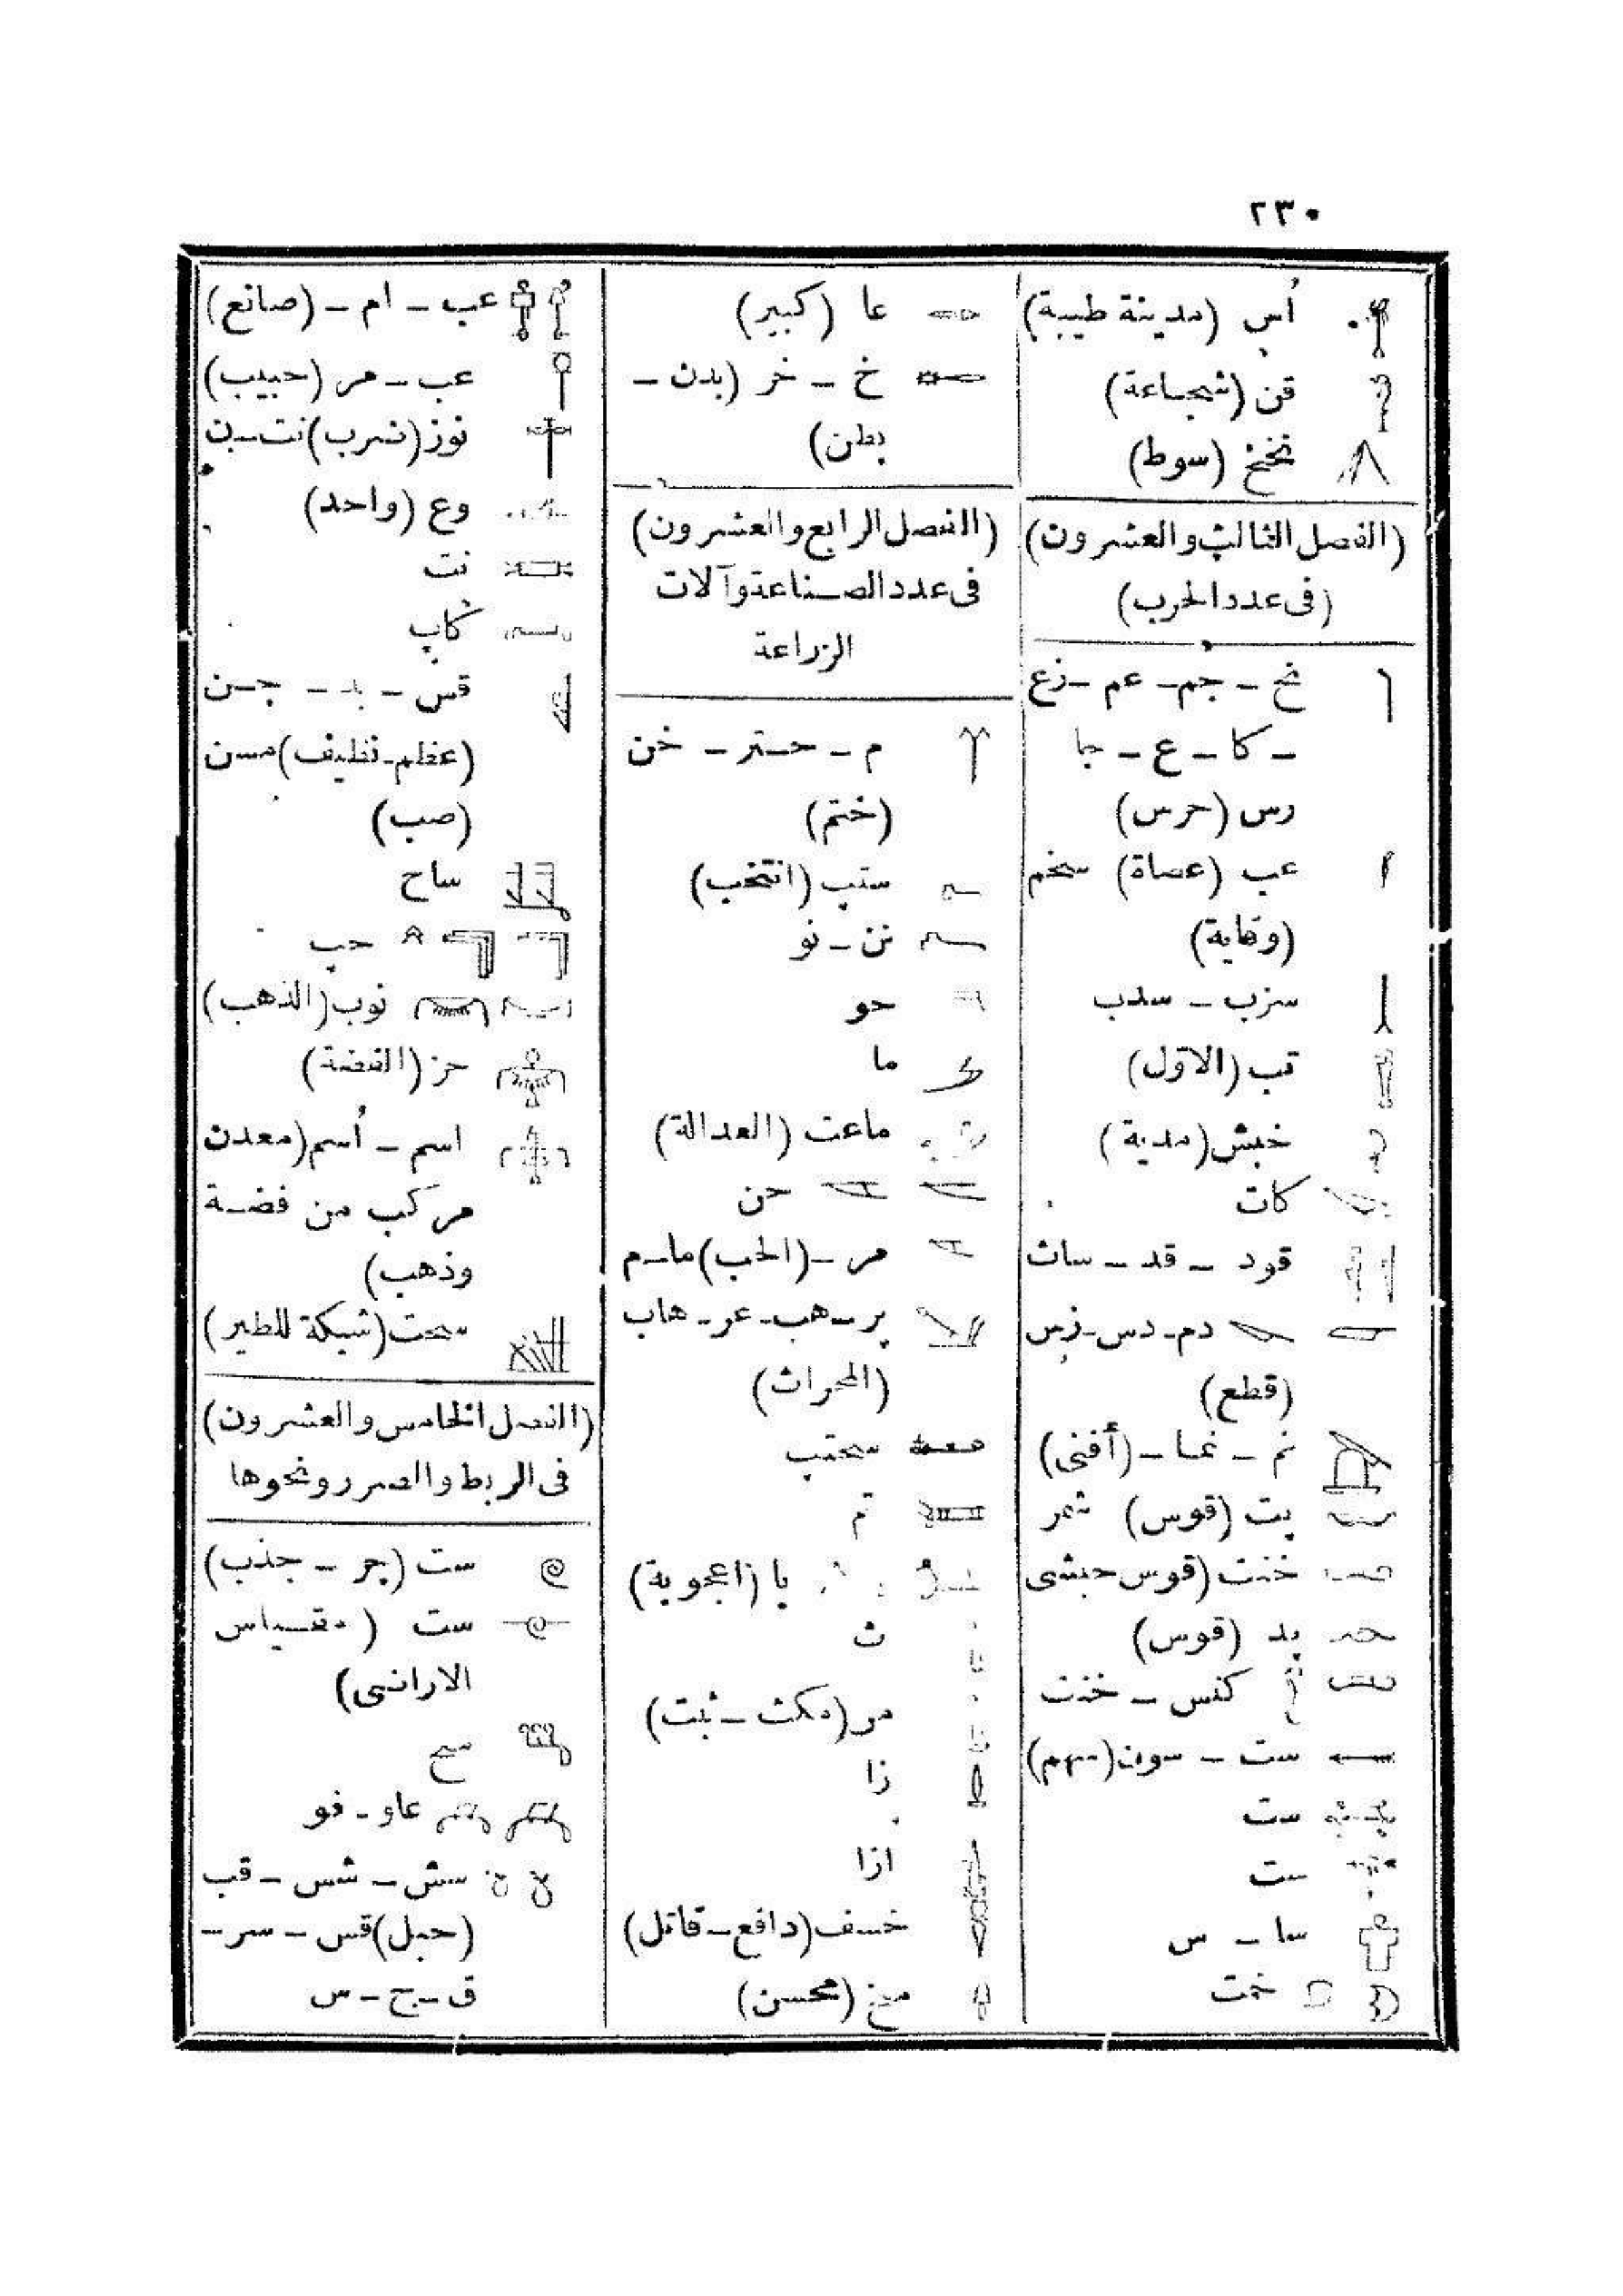 ٢٣٠
أس (مدينة طيبة)
قن (شجاعة)
نخخ (سوط)
(الفصل الثالث والعشرون)
(فى عدد الحرب)
نخ - جم - عم - زع
- كا - ع - جا
رس (حرس)
عب (عصاة) سخم
(وقاية)
سزب - سدب
تب (الاول)
خبش (مدية)
كات
قود - قد - سات
دم - دس - زس
(قطع)
نم - نما - (أفنى)
پت (قوس) شمر
خنت (قوس حبشى
پد (قوس)
كنس - خنت
ست - سون (سهم)
ست
ست
سا - س
خت
عا (كبير)
خ - خر (بدن -
بطن)
(الفصل الرابع والعشرون)
فى عدد الصناعة وآلات
الزراعة
م - حتر - خن
(ختم)
ستپ (انتخب)
نن - نو
حو
ما
ماعت (العدالة)
حن
مر - (الحب) ما - م
پر - هب - عر - هاب
(المحراث)
سحتب
تم
با (اعجوبة)
ث
مر (مكث - ثبت)
زا
ازا
خسف (دافع - قاتل)
منخ (محسن)
عب - ام - (صانع)
عب - مر (حبيب)
نوز (ضرب) نت - ن
وع (واحد)
نت
كاپ
قس - بد - جن
(عظم - نظيف) مسن
(صب)
ساح
حپ
نوب (الذهب)
حز (الفضة)
اسم - أسم (معدن
مركب من فضة
وذهب)
سحت (شبكة للطير)
(الفصل الخامس والعشرون)
فى الربط والصرر ونحوها
ست (جر - جذب)
ست (مقياس
الاراضى)
سح
عاو - فو
سش - شس - قب
(حبل) قس - سر -
ق - ج - س